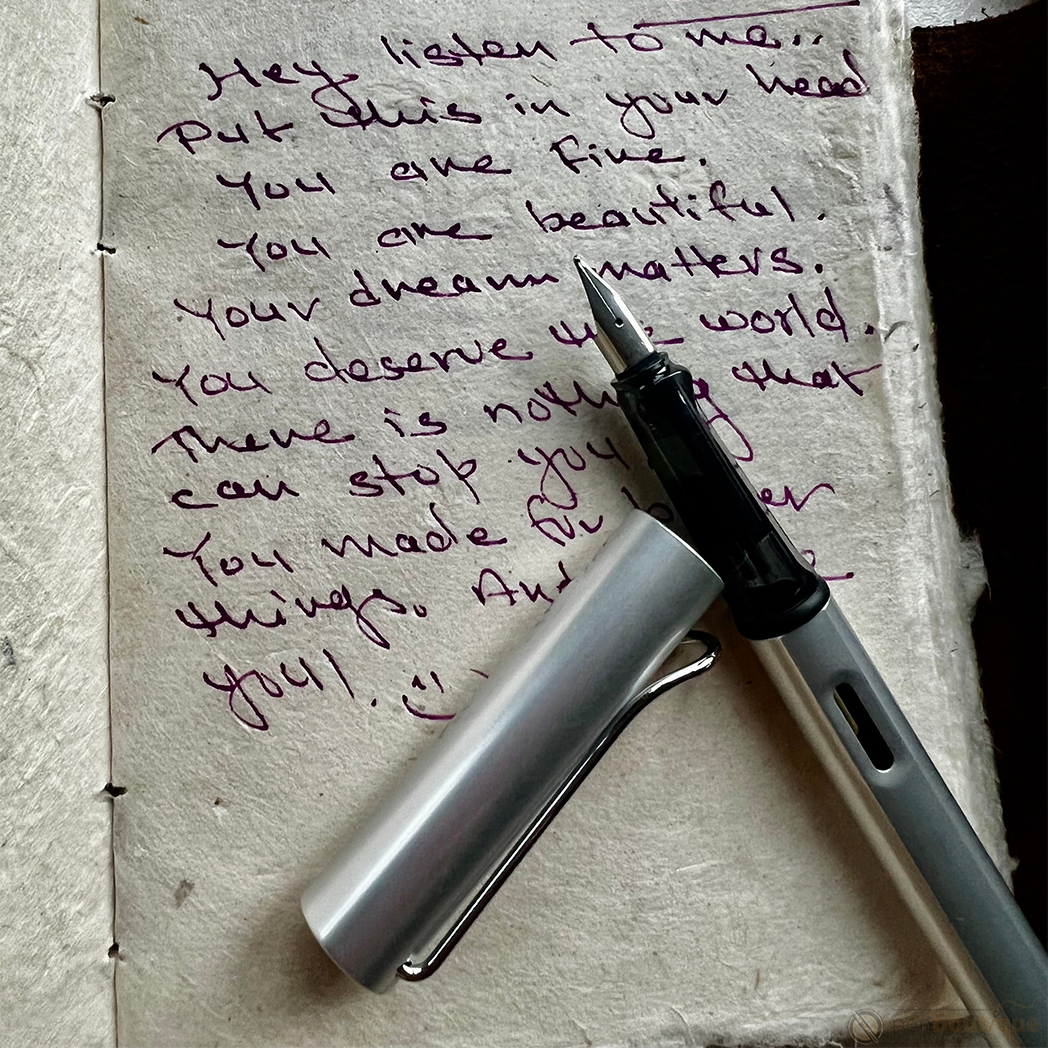 Hey listen to me..
Put this in your head
You are fine.
You are beautiful.
Your dream matters.
You deserve the world.
There is nothing that
can stop you
You made for
things. And
you!. :)